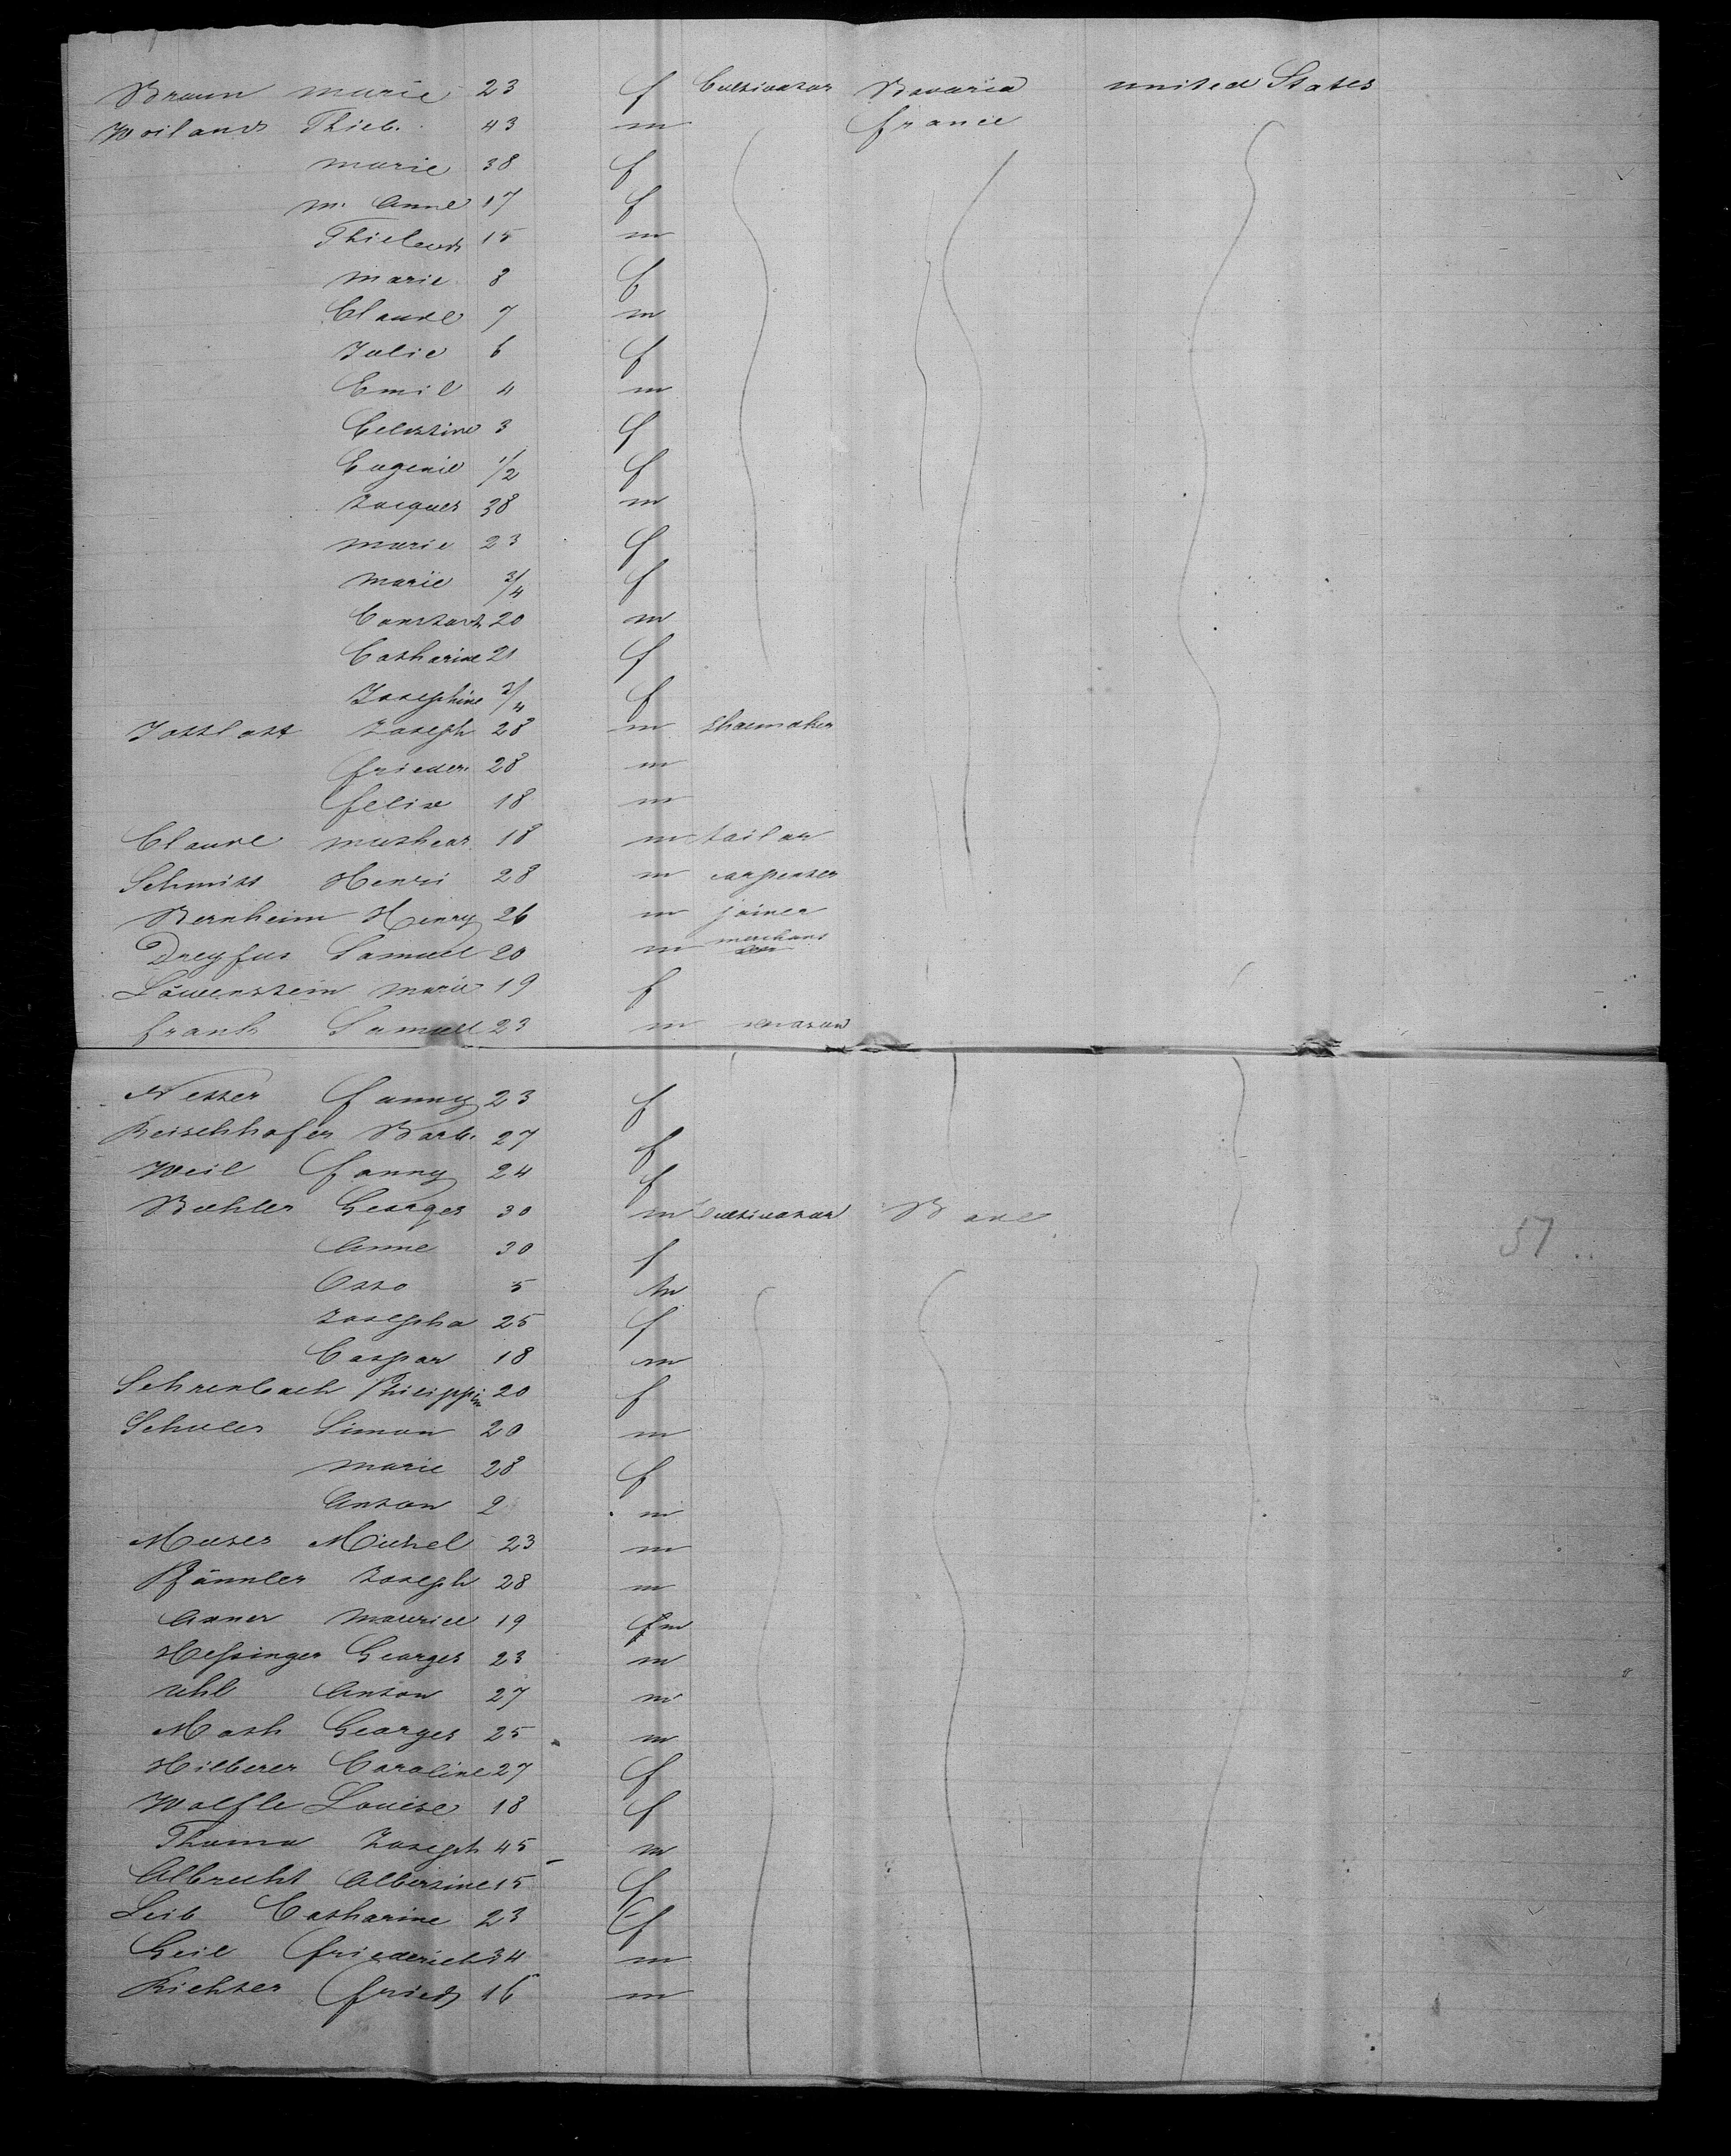 Braun marie 23 f Cultivator Bavaria united States
Woiland Thieb. 43 m france
marie 38 f
m. Anne 17 f
Thiebaud 15 m
marie 8 f
Claude 7 m
Julie 6 f
Emil 4 m
Celestine 3 f
Eugenie 1/2 f
Jacques 38 m
marie 23 f
marie 3/4 f
Constant 20 m
Catharine 21 f
Josephine 3/4 f
Joseph 28 m shoemaker
frieder. 28 m
felix 18 m
Claude 18 m tailor
Schmitt Henri 28 m carpenter
Bernheim Henry 26 m joiner
Dreyfus Samuel 20 m merchant
Löwenstein marie 19 f
frank Samuel 23 m
Netter fanny 23 f
Reischhofer Barb. 27 f
Weil fanny 24 f
Buhler Georges 30 m cultivator Bade
Anne 30 f
Otto 5 m
Josepha 25 f
Caspar 18 m
Sehrenbach Philippin 20 f
Schuler Simon 20 m
marie 28 f
Anton 2 m
Muser Michel 23 m
Pfännler Joseph 28 m
maurice 19 m
Hessinger Georges 23 m
Uhl Anton 27 m
Moth Georges 25 m
Hilberer Caroline 27 f
Wolfle Louise 18 f
Thoma Joseph 45 m
Albrecht Albertine 15 f
Leib Catharine 23 f
Geil friederich 34 m
Richter fried 16 m
57